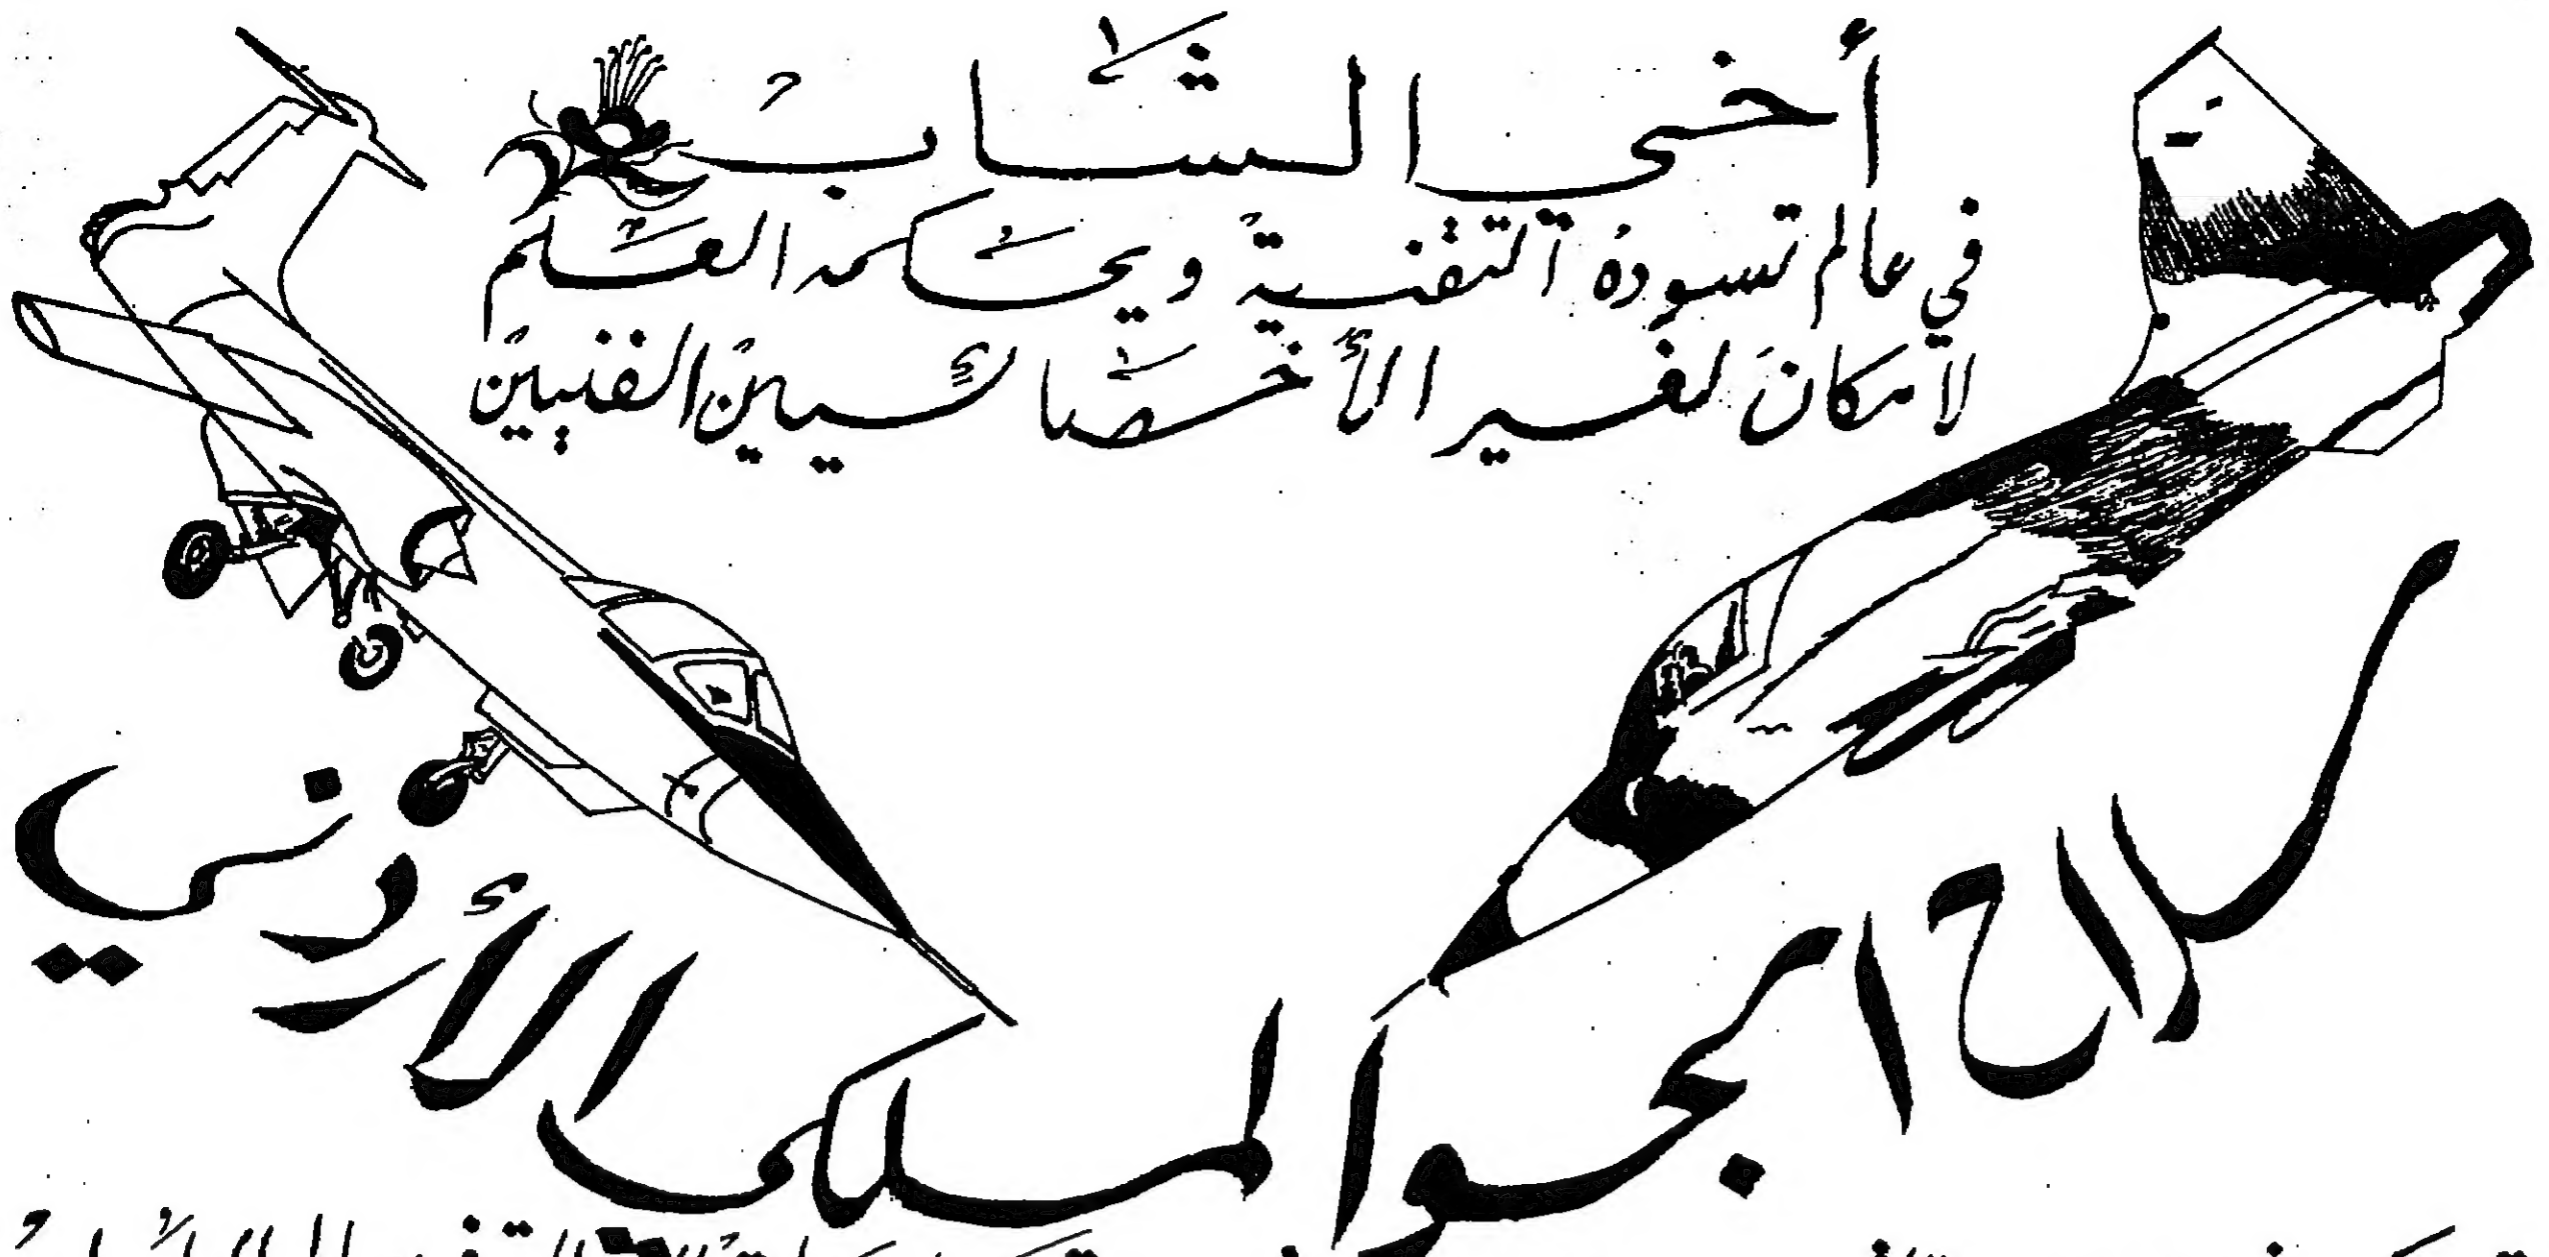 أخي الشَّابُ
في عالم تسودهُ التقنيةُ ويحكمه العِلْم
لا مكانَ لغير الأخصّائيينَ الفنيينْ
سلاح الجو الملكي الأردني